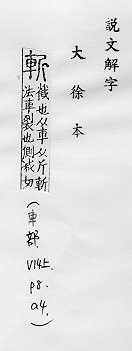 說文解字
大徐本
斬
𢧵也从車从斤斬
法車裂也側減切
(車部
V14上.
p8.
a4.)